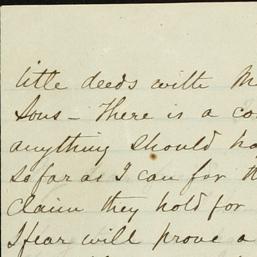 title deeds with M
Sons – There is a co
anything should ha
so far as I can for th
Claim they hold for
I fear will prove a